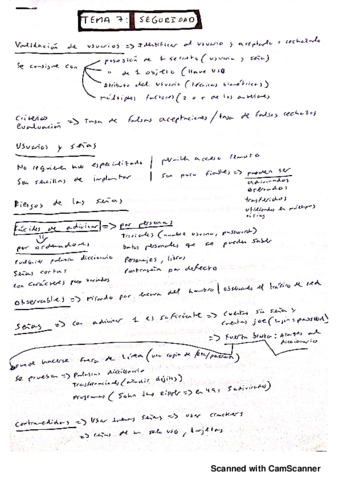 TEMA 7: SEGURIDAD
Validación de usuarios => Identificar al usuario y aceptarlo o rechazarlo
Se consigue con posesión de 1 secreto (usuario y seña)
" de 1 objeto (llave USB)
Atributo del usuario (técnicas biométricas)
múltiples factores (2 o + de los anteriores)
Criterios
Evaluación => Tasa de falsas aceptaciones / tasa de falsos rechazos
Usuarios y señas
No requieren hw especializado | permite acceso remoto
Son sencillas de implantar | Son poco fiables => pueden ser
adivinados
observados
transferidos
utilizados en múltiples
sitios
Riesgos de las señas
Fáciles de adivinar => por personas
por ordenadores Triviales (nombre usuario, password)
Cualquier palabra diccionario Datos personales que se puedan saber
Señas cortas Personajes, libros
con carácteres poco variados Contraseña por defecto
Observables => Mirando por encima del hombro / observando el tráfico de red
Señas => con adivinar 1 es suficiente => Cuentas sin señas
cuentas joe (login = password)
=> Fuerza bruta: ataques al
diccionario
puede hacerse fuera de línea (una copia de /etc/passwd)
Se prueban => Palabras diccionario
Transformaciones (añadir dígitos)
Programas (John the Ripper => en 49s 5 adivinadas)
Contramedidas => Usar buenas señas => usar crackers
=> señas de un solo uso, tarjetas
Scanned with CamScanner